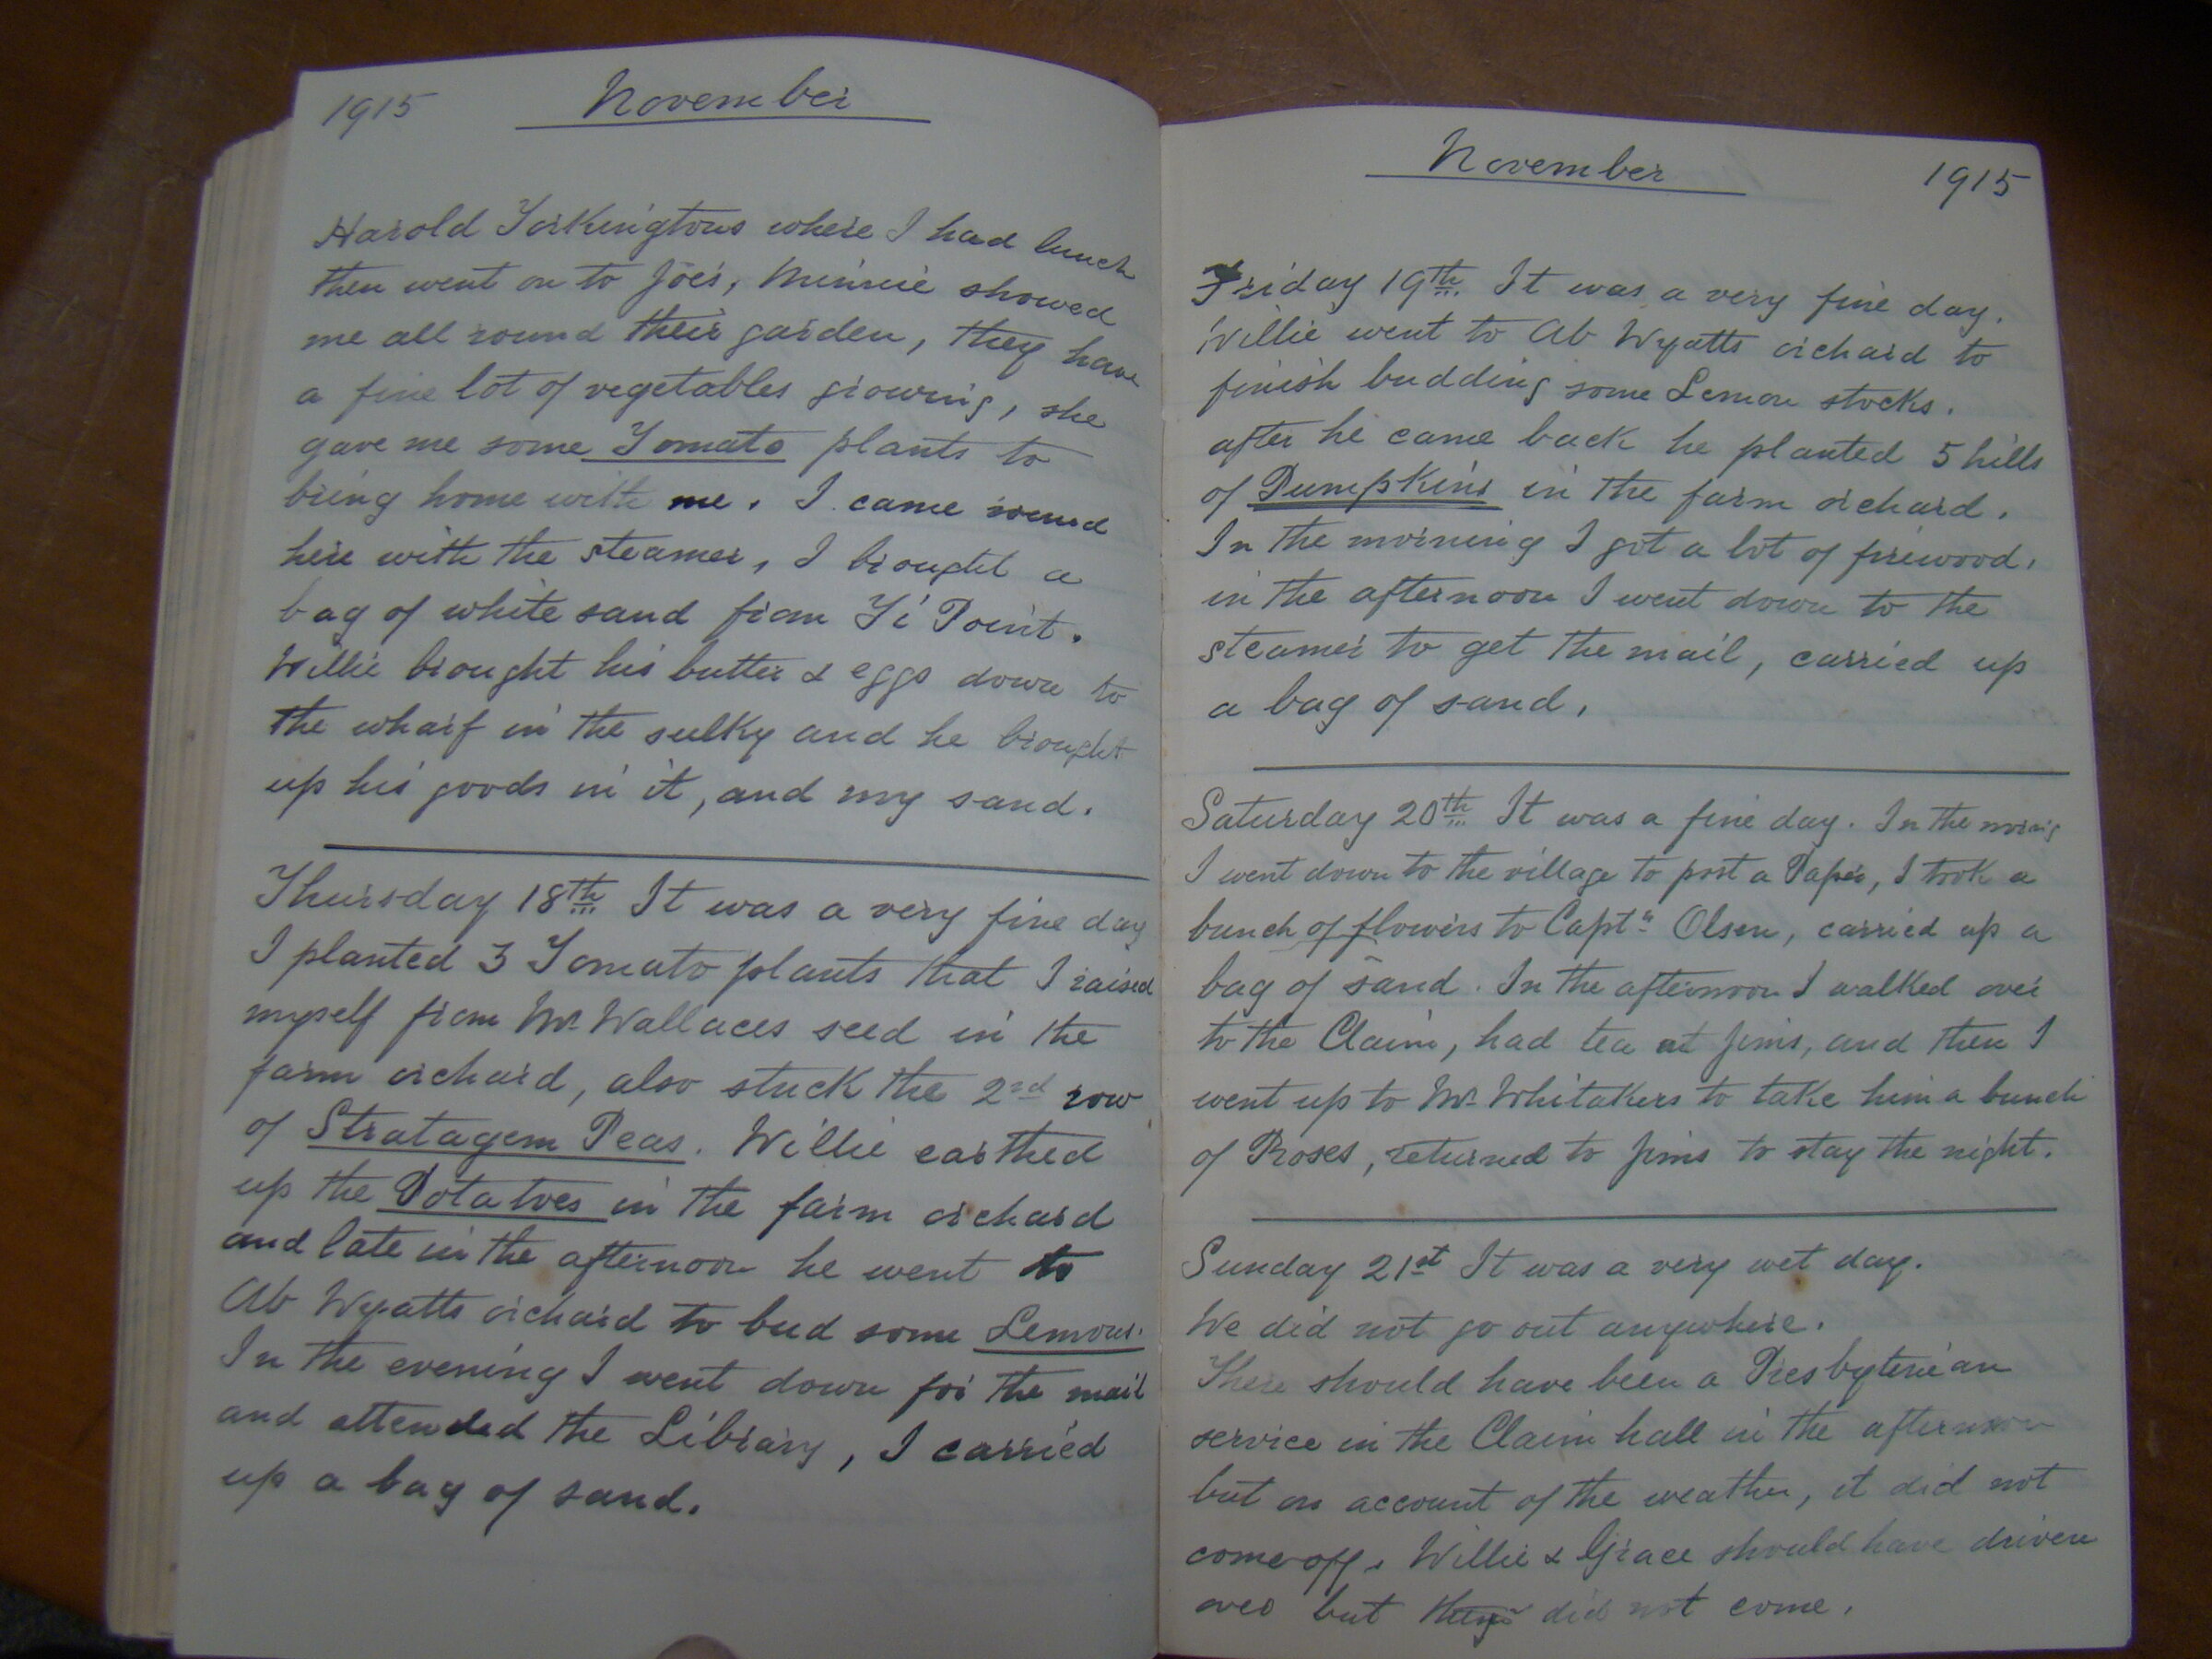 1915 November
Harold Torkingtons where I had lunch
then went on to Joes, Minnie showed
me all round their garden, they have
a fine lot of vegetables growing, she
gave me some Tomato plants to
bring home with me. I came round
here with the steamer, I brought a
bag of white sand from Ti Point.
Willie brought his butter & eggs down to
the wharf in the sulky and he brought
up his goods in it, and my sand.
Thursday 18th It was a very fine day
I planted 3 Tomato plants that I raised
myself from Mr Wallaces seed in the
farm orchard, also stuck the 2nd row
of Stratagem Peas. Willie earthed
up the Potatoes in the farm orchard
and late in the afternoon he went to
Ab Wyatts orchard to bud some Lemons.
In the evening I went down for the mail
and attended the Library, I carried
up a bag of sand.
November 1915
Friday 19th. It was a very fine day.
Willie went to Ab Wyatts orchard to
finish budding some Lemon stocks.
after he came back he planted 5 hills
of Pumpkins in the farm orchard.
In the morning I got a lot of firewood,
in the afternoon I went down to the
steamer to get the mail, carried up
a bag of sand.
Saturday 20th It was a fine day. In the morning
I went down to the village to post a Paper, I took a
bunch of flowers to Captn Olsen, carried up a
bag of sand. In the afternoon I walked over
to the Claim, had tea at Jims, and then I
went up to Mr Whitakers to take him a bunch
of Roses, returned to Jims to stay the night.
Sunday 21st It was a very wet day.
We did not go out anywhere.
There should have been a Presbyterian
service in the Claim hall in the afternoon
but on account of the weather, it did not
come off. Willie & Grace should have driven
over but they did not come.